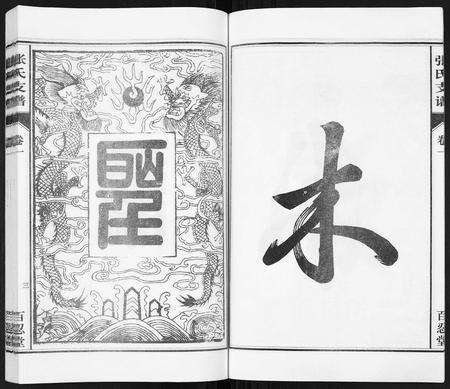 張氏支譜
卷一
百忍堂
木
張氏支譜
卷一
百忍堂